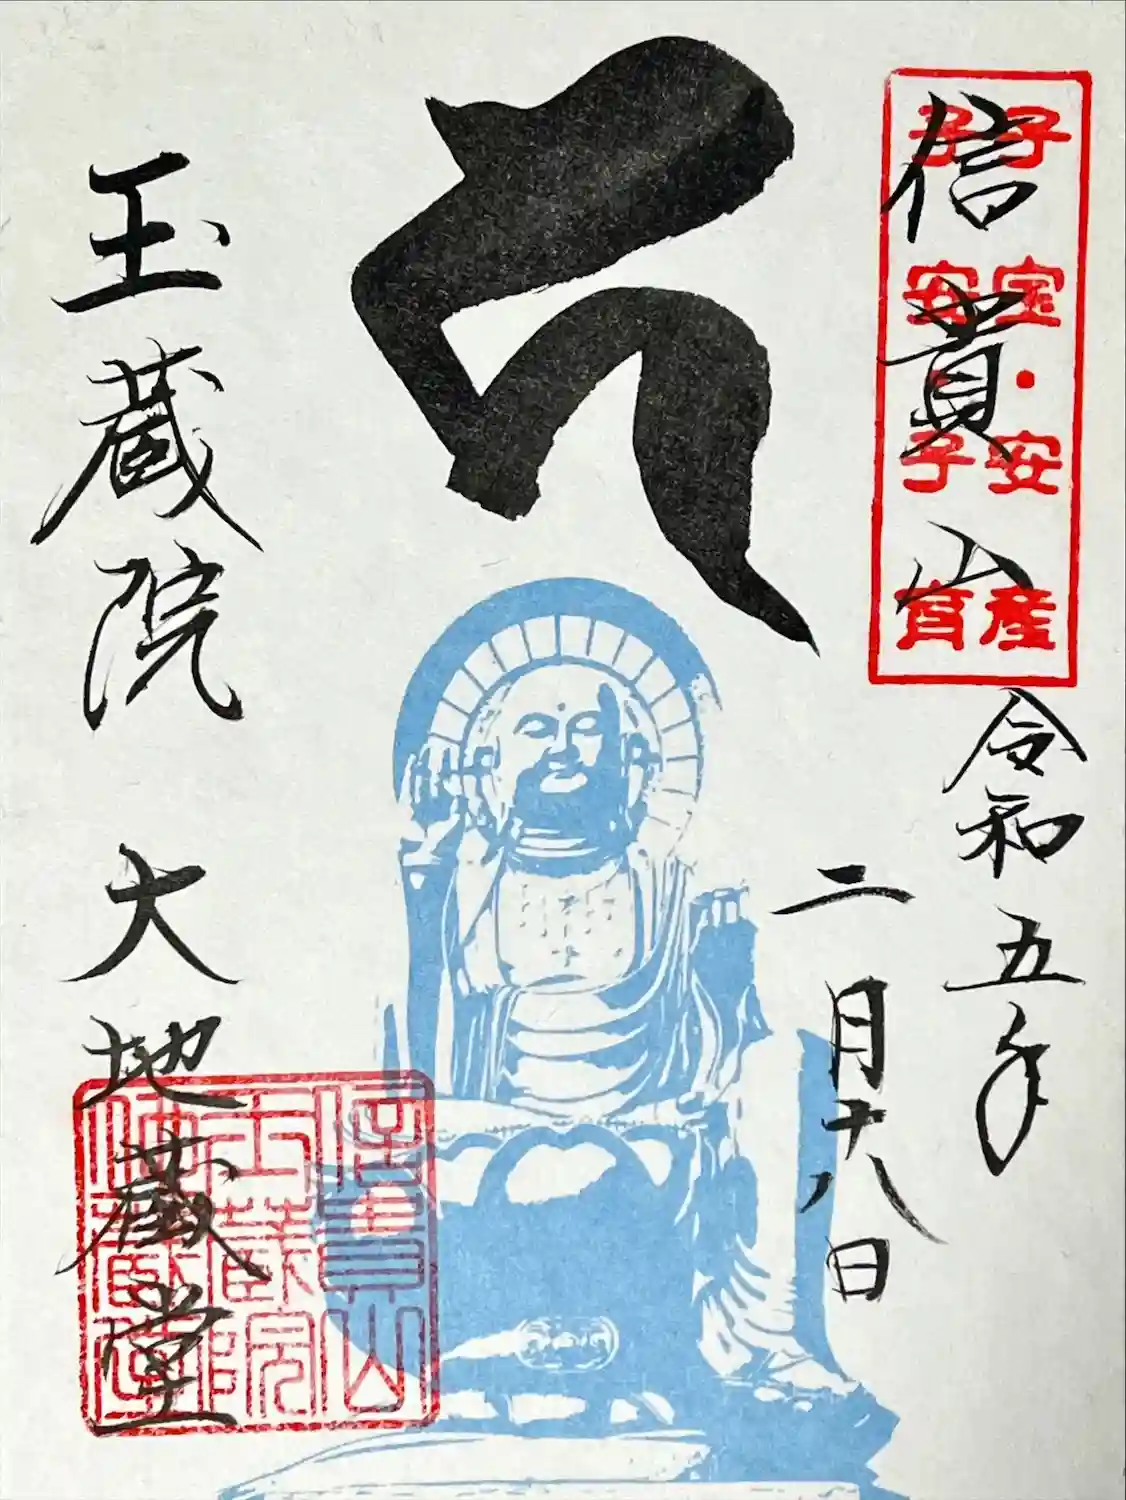 子宝・安産
子安・子育
信貴山
令和五年
二月十八日
𑖮
玉蔵院 大地蔵堂
信貴山
玉蔵院